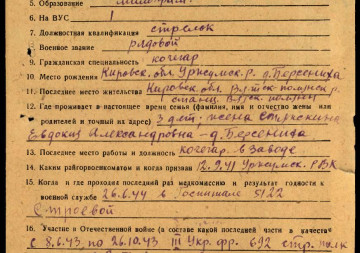 5. Образование
6. На ВУС 1
7. Должностная квалификация стрелок
8. Военное звание рядовой
9. Гражданская специальность кочегар
10. Место рождения Кировск. обл. Уржумск. р. д. Берсениха
11. Последнее место жительства Кировск. обл.
12. Где проживает в настоящее время семья (фамилия, имя и отчество жены или
родителей и точный их адрес) 3 дет. жена
Евдокия Александровна - д. Берсениха
13. Последнее место работы и должность кочегар в заводе
14. Каким райгорвоенкоматом и когда призван 12.9.41 Уржумск. РВК
15. Когда и где проходил последний раз медкомиссию и результат годности к
военной службе 26.6.44 в госпитале 5122
Строевой
16. Участие в Отечественной войне (в составе какой последней части в качестве
с 8.6.43 по 26.10.43 III Укр. фр. 692 стр. полк